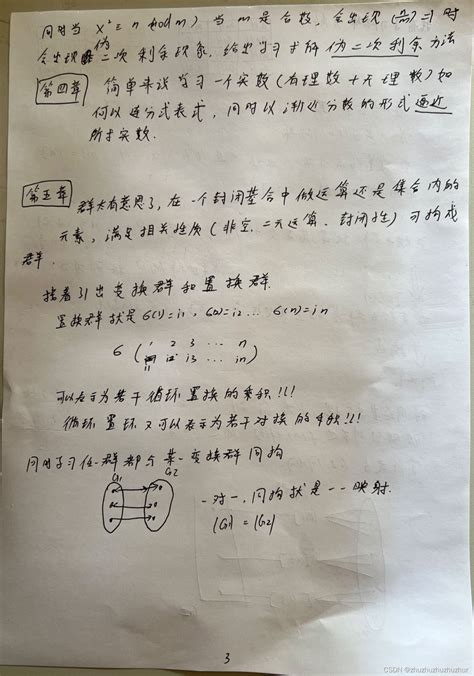 同时当 x² ≡ n (mod m) 当 m 是合数, 会出现 (n/m)=1 时
会出现伪二次剩余现象. 给出学习求解伪二次剩余方法
第四章 简单来说学习一个实数(有理数+无理数)如
何以连分式表式, 同时以渐近分数的形式逼近
所求实数.
第五章 群太有意思了, 在一个封闭集合中做运算还是集合内的
元素, 满足相关性质(非空、二元运算、封闭性)可构成
群.
接着引出变换群和置换群.
置换群就是 6(1)=i1, 6(2)=i2 ... 6(n)=in
6 ( 1 2 3 ... n
i1 i2 i3 ... in )
可以表示为若干循环置换的乘积!!!
循环置环又可以表示为若干对换的乘积!!!
同时学习任一群都与某一变换群同构
G1 G2
一对一, 同构就是一一映射.
|G1| = |G2|
3
CSDN @zhuzhuzhuzhuzhur